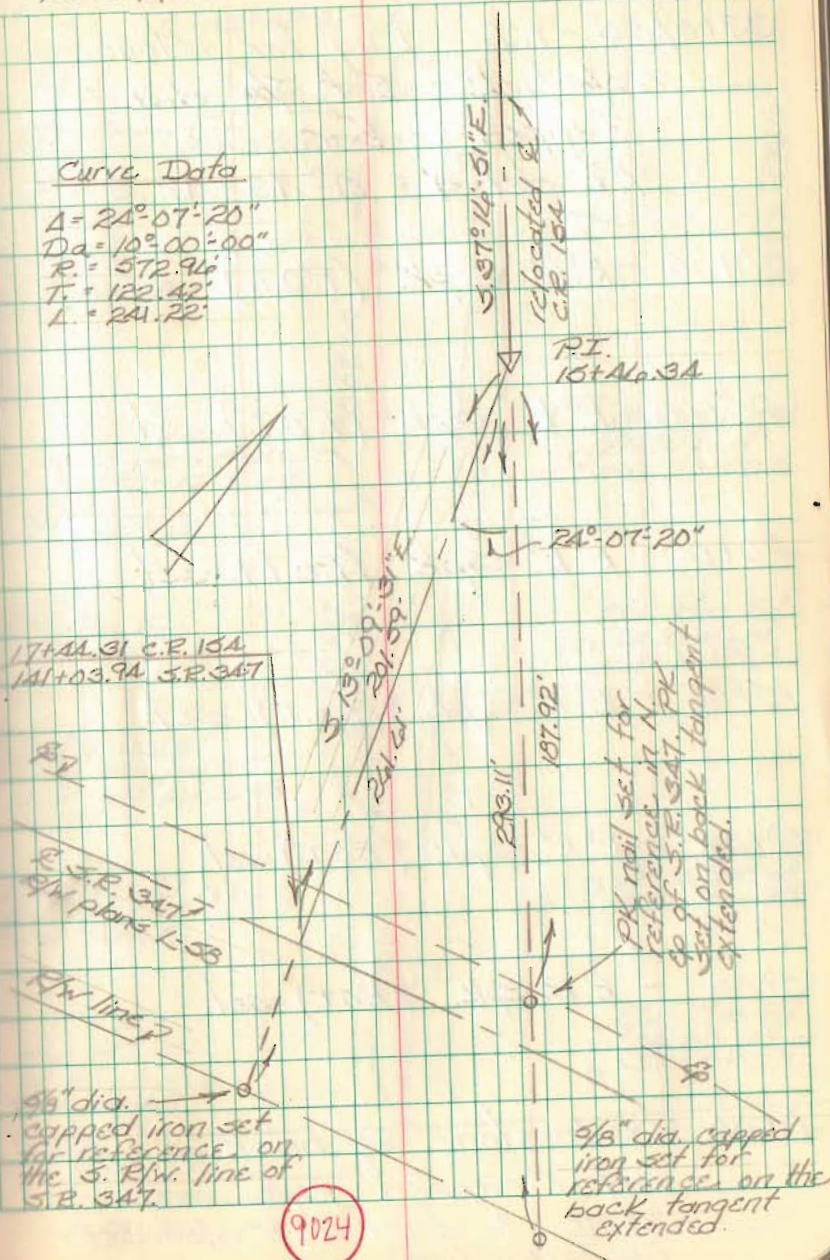 Curve Data
Δ = 24°-07'-20"
Da = 10°-00'-00"
R. = 572.96'
T. = 122.42'
L. = 241.22'
S.37°-16'-51"E.
relocated ℄
C.R. 15A
P.I.
15+46.34
24°-07'-20"
S.13°-09'-31"E
201.59'
261.61'
17+44.31 C.R. 15A
141+03.94 S.R. 347
187.92'
293.11'
PK nail set for
reference, in N.
EP of S.R. 347. PK
set on back tangent
extended.
℄ S.R. 347
R/W plans L-58
R/W line
5/8" dia.
capped iron set
for reference, on
the S. R/W. line of
S.R. 347.
5/8" dia. capped
iron set for
reference on the
back tangent
extended.
9024